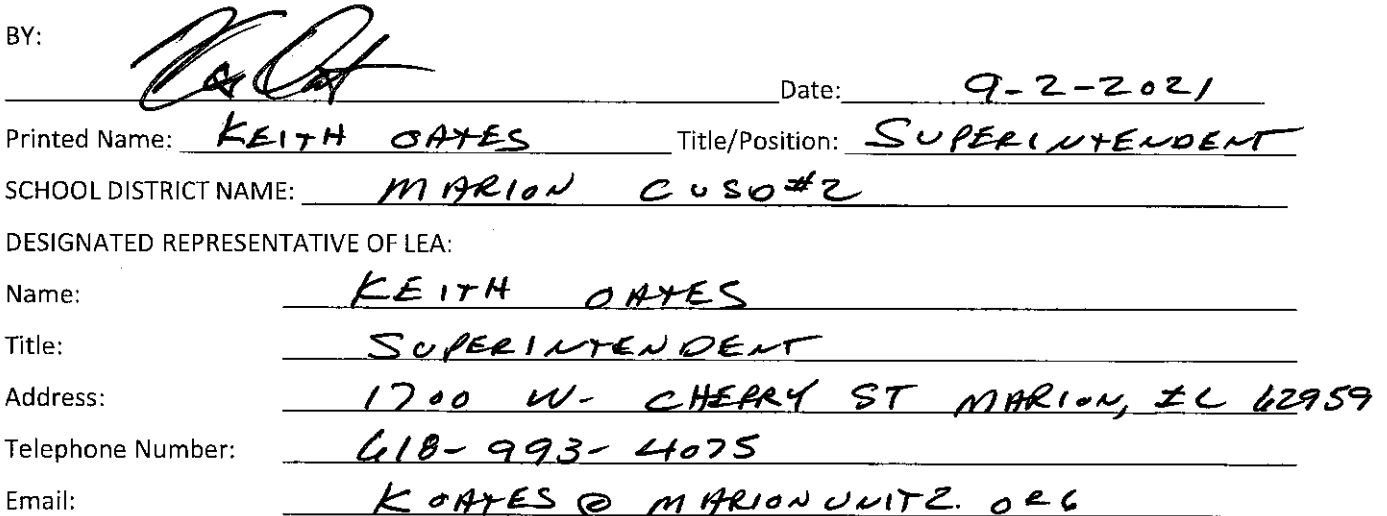 BY:
Date: 9-2-2021
Printed Name: KEITH OATES Title/Position: SUPERINTENDENT
SCHOOL DISTRICT NAME: MARION CUSD #2
DESIGNATED REPRESENTATIVE OF LEA:
Name: KEITH OATES
Title: SUPERINTENDENT
Address: 1700 W. CHERRY ST MARION, IL 62959
Telephone Number: 618-993-4075
Email: KOATES@MARIONUNIT2.ORG